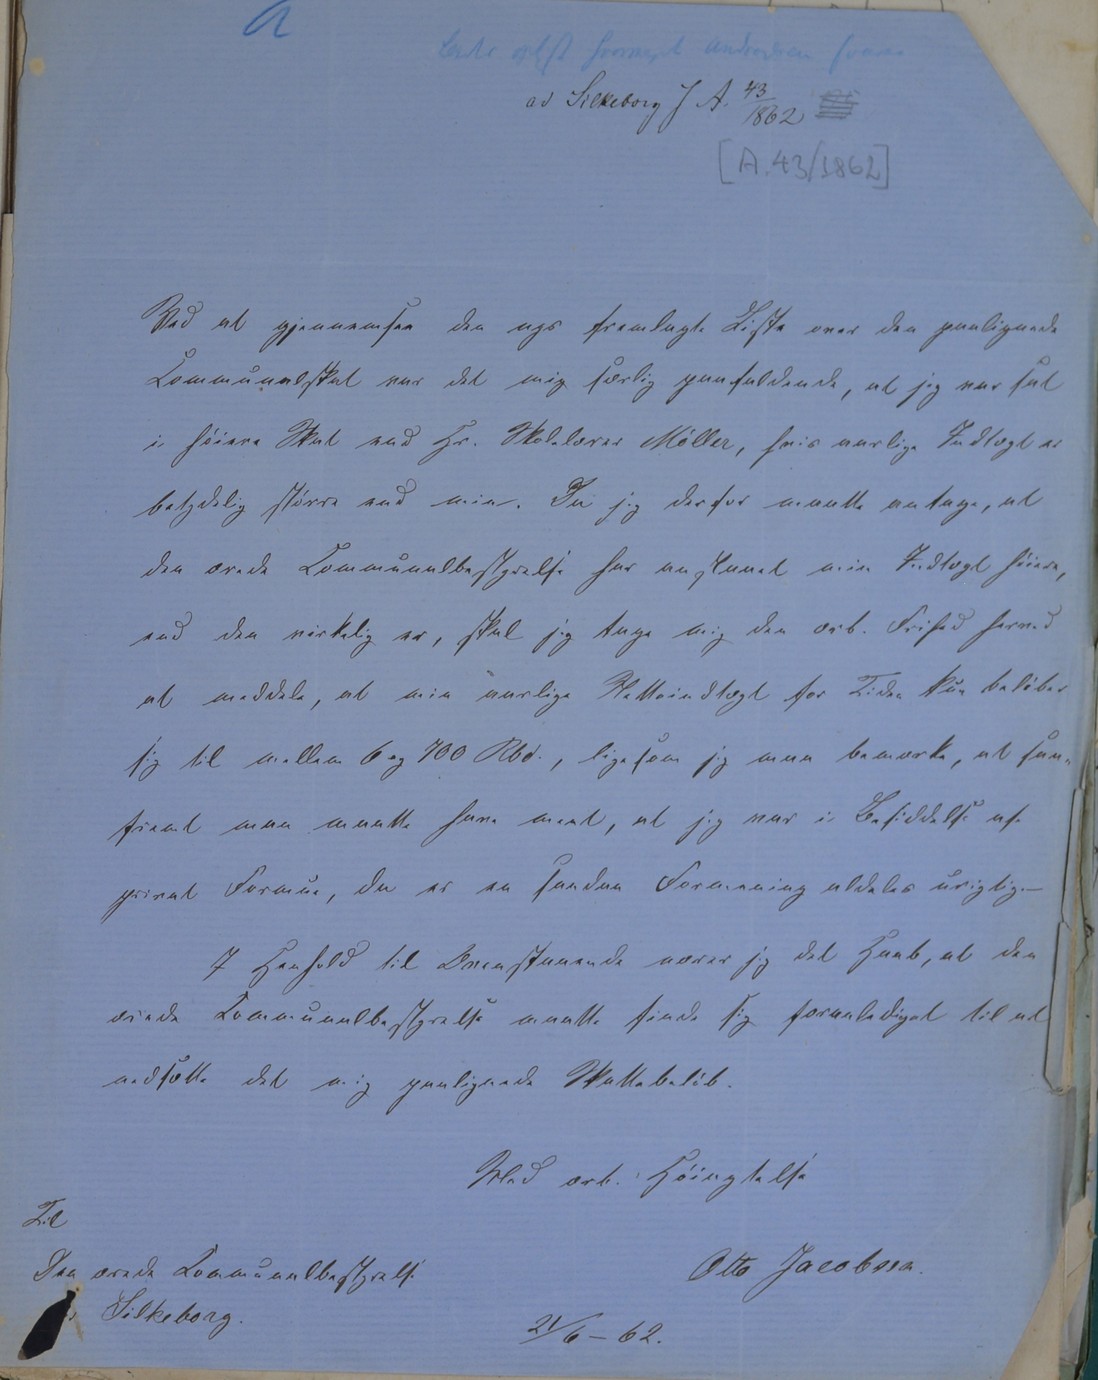 ad Silkeborg J A. 43/1862
[A.43/1862]
Ved at gjennemsee den nys fremlagte Liste over den paalignede
Communalskat var det mig særlig paafaldende, at jeg var sat
i høiere Skat end Hr. Skolelærer Møller, hvis aarlige Indtægt er
betydelig større end min. Da jeg derfor maatte antage, at
den ærede Communalbestyrelse har anslaaet min Indtægt høiere,
end den virkelig er, skal jeg tage mig den ærb. Frihed herved
at meddele, at min aarlige Nettoindtægt for Tiden kun beløber
sig til mellem 6 og 700 Rbd., ligesom jeg maa bemærke, at saa-
fremt man maatte have meent, at jeg var i Besiddelse af
privat Formue, da er en saadan Formening aldeles urigtig.—
I Henhold til Ovenstaaende nærer jeg det Haab, at den
ærede Communalbestyrelse maatte finde sig foranlediget til at
nedsætte det mig paalignede Skattebeløb.
Med ærb. Høiagtelse
Otto Jacobsen.
Til
Den ærede Communalbestyrelse
Silkeborg.
21/6 – 62.